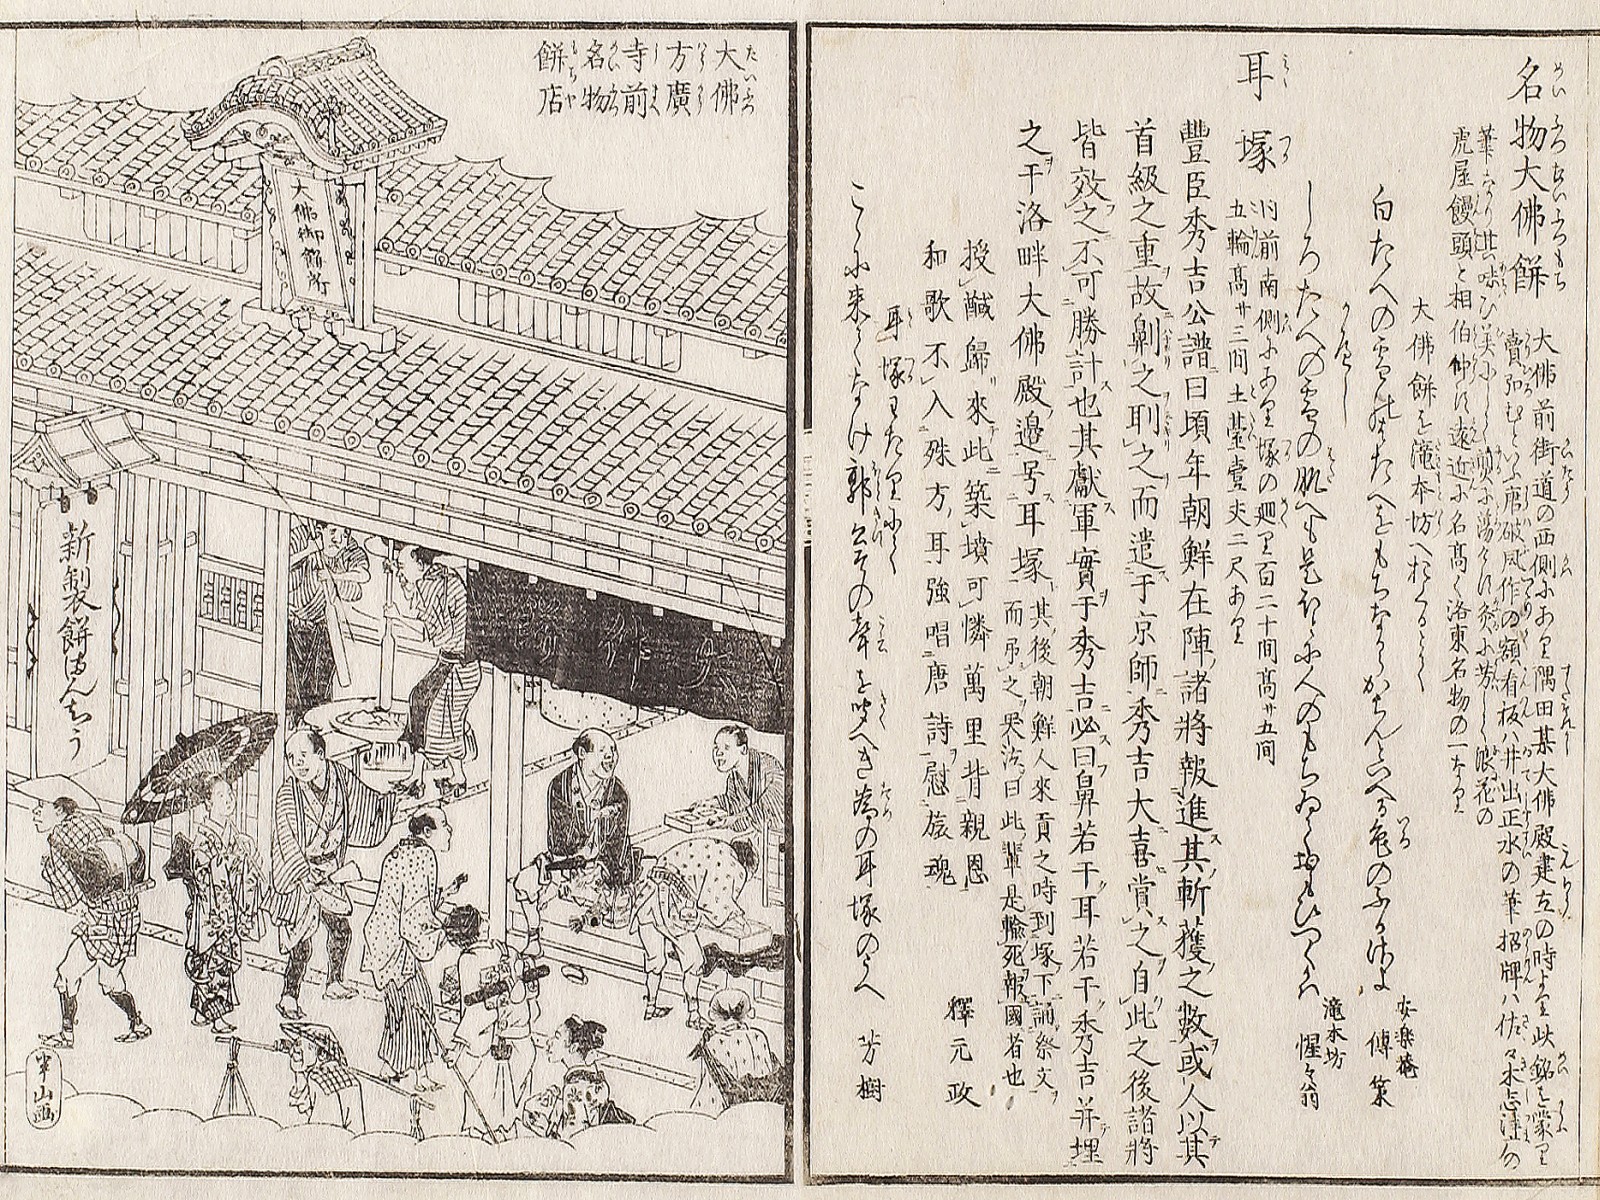 名物大佛餅
大佛前街道の西側にあり隅田某大佛殿建立の時より此銘を蒙り
賣弘むといふ唐破風作の額看板ハ井出正水の筆招牌ハ佐々木志津〻の
筆なり其味ひ美にして煎に蕩けず炙に芳して浪花の
虎屋饅頭と相伯仲す遠近に名高く洛東名物の一なり
大佛餅を滝本坊へおくるとて
白たへの雪はたへをもちながらかちんといへる色のふかさよ
安楽菴
傳策
かへし
しろたへの雪の肌へも是ほどに人のもちゐて
滝本坊
惺々翁
耳塚
同前南側にあり塚の廻り百二十間高サ五間
五輪高サ三間土臺壹丈二尺あり
豐臣秀吉公譜曰頃年朝鮮在陣諸將報進其斬獲之數或人以其
首級之重故劓之刵之而遣于京師秀吉大喜賞之自此之後諸將
皆效之不可勝計也其獻軍實于秀吉必曰鼻若干耳若干秀吉并埋
之于洛畔大佛殿邊号耳塚
其後朝鮮人來貢之時到塚下誦祭文
而弔之哭泣曰此輩是輸死報國者也
授馘歸來此築墳可憐萬里背親恩
和歌不入殊方耳強唱唐詩慰旅魂
釋元政
耳塚わたりにて
こゝに来てなけ郭公その聲を聞べき為の耳塚のうへ
芳樹
大佛
方廣
寺前
名物
餅店
大佛御餅所
新製餅まんぢう
半山画